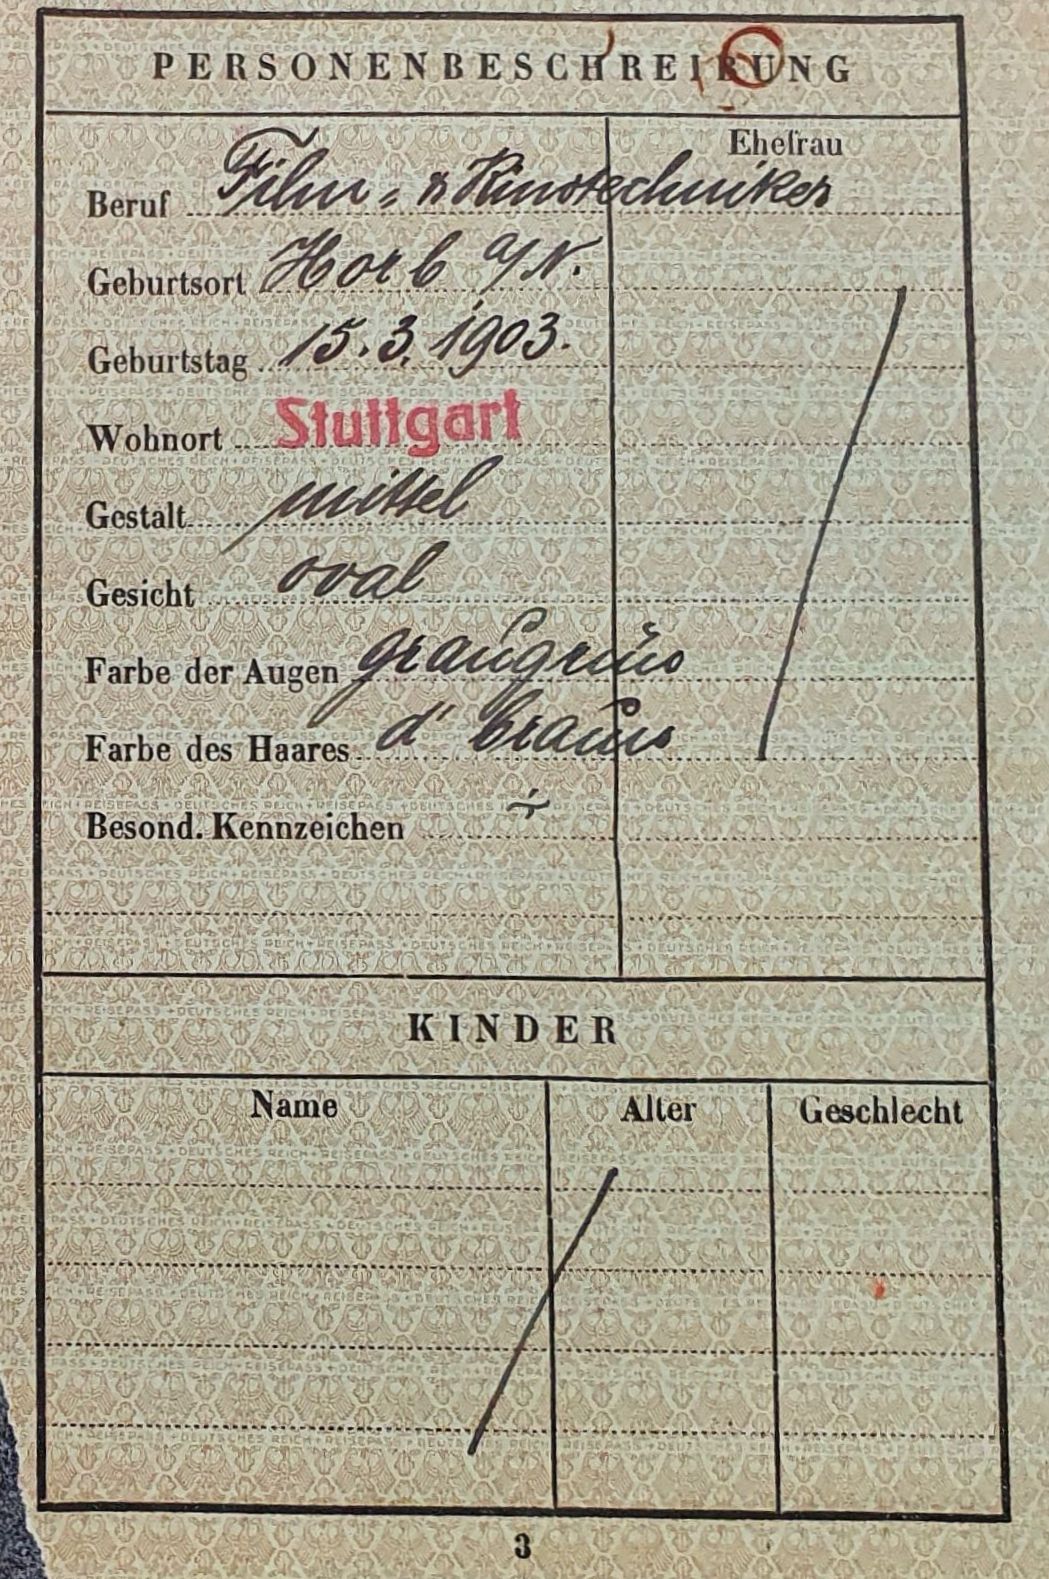 PERSONENBESCHREIBUNG
Ehefrau
Beruf Film- & Kinotechniker
Geburtsort Horb a/N.
Geburtstag 15.3.1903.
Wohnort Stuttgart
Gestalt mittel
Gesicht oval
Farbe der Augen graugrün
Farbe des Haares d' braun
Besond. Kennzeichen
KINDER
Name Alter Geschlecht
3